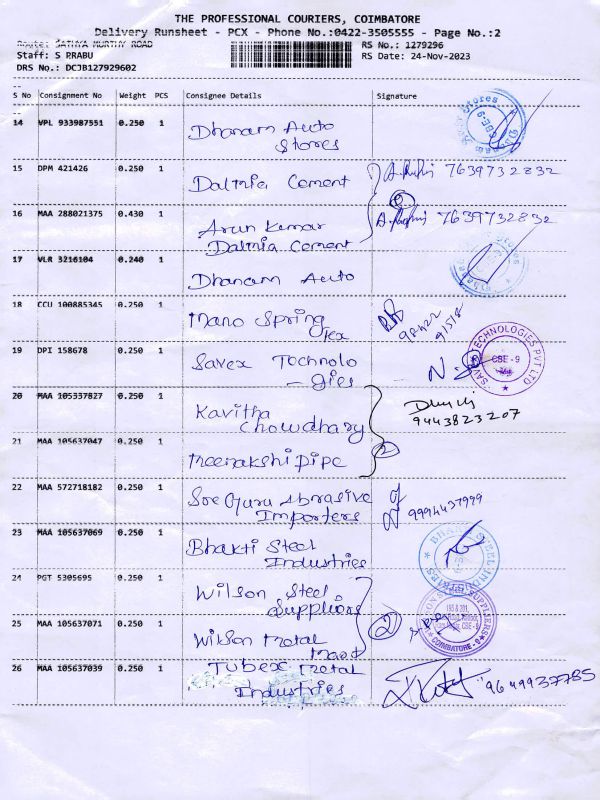 THE PROFESSIONAL COURIERS, COIMBATORE
Delivery Runsheet - PCX - Phone No.:0422-3505555 - Page No.:2
Route: SATHYA MURTHY ROAD
RS No.: 1279296
Staff: S PRABU
RS Date: 24-Nov-2023
DRS No.: DCJB127929602
S No Consignment No Weight PCS Consignee Details Signature
14 VPL 933987551 0.250 1 Dhanam Auto
Stores
15 DPM 421426 0.250 1 Dalmia Cement 7639732832
16 MAA 288021375 0.430 1 Arun Kumar 7639732832
Dalmia Cement
17 VLR 3216104 0.240 1 Dhanam Auto
18 CCU 100885345 0.250 1 Mano Spring
Tex
98422
91518
19 DPI 158678 0.250 1 Savex Technolo
- gies
SAVEX TECHNOLOGIES PVT LTD
CBE - 9
20 MAA 105337827 0.250 1 Kavitha
Chowdhary
9443823207
21 MAA 105637047 0.250 1 Meenakshi pipe
2
22 MAA 572718182 0.250 1 Sree Guru Abrasive
Importers
9994437999
23 MAA 105637069 0.250 1 Bhakti Steel
Industries
BHAKTI STEEL INDUSTRIES
24 PGT 5305695 0.250 1 Wilson Steel
Suppliers
2
25 MAA 105637071 0.250 1 Wilson Metal
Mart
COIMBATORE - 9
26 MAA 105637039 0.250 1 Tubex Metal
Industries
9649937785